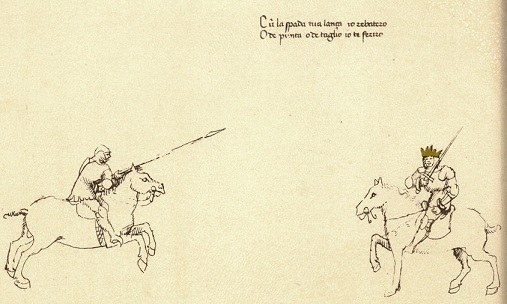 Cū la spada tua lança io rebatero
O de punta o de taglio io te feriro